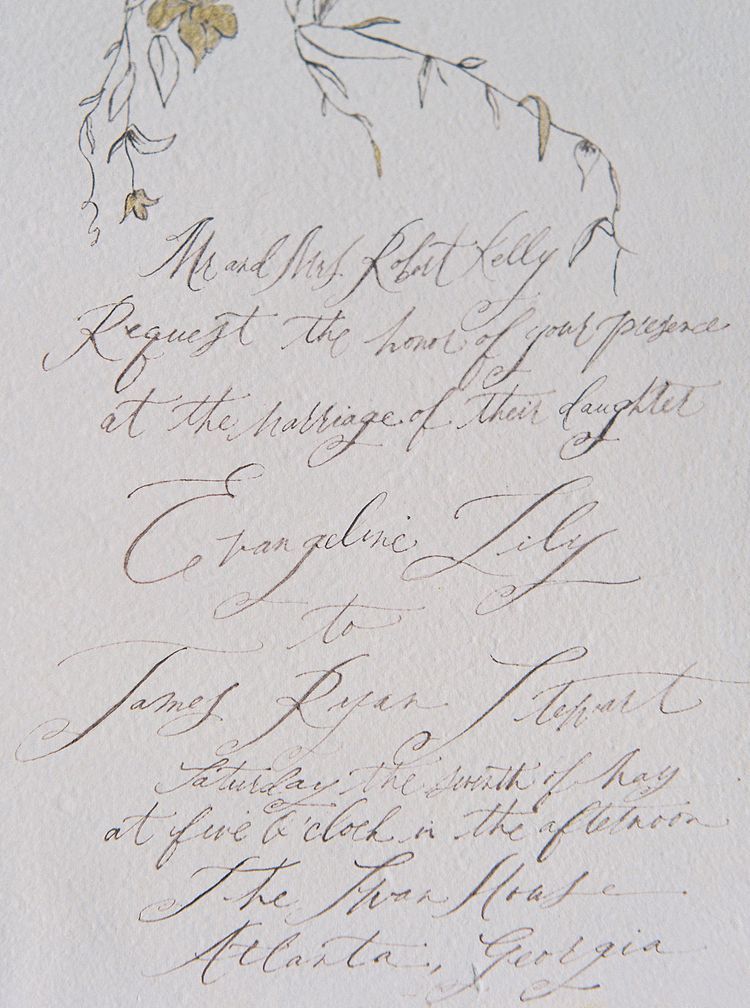 Mr and Mrs Robert Kelly
Request the honor of your presence
at the marriage of their daughter
Evangeline Lily
to
James Ryan Stewart
Saturday the seventh of May
at five o'clock in the afternoon
The Swan House
Atlanta, Georgia